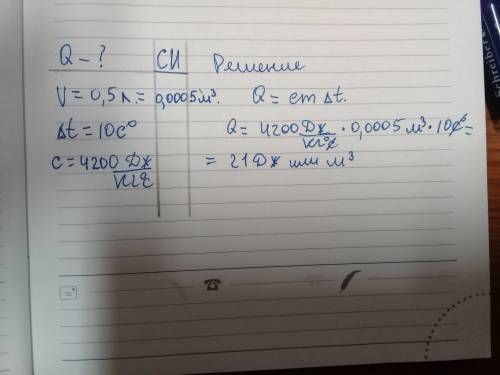 Q – ? СИ Решение
V = 0,5 л. = 0,0005 м³. Q = cm Δt.
Δt = 10 c° Q = 4200 Дж/кг°c · 0,0005 м³ · 10 c° =
c = 4200 Дж/кг°c = 21 Дж или м³
Schreiber